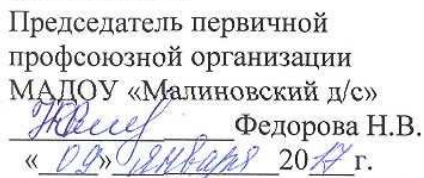 Председатель первичной
профсоюзной организации
МАДОУ «Малиновский д/с»
Федорова Н.В.
«09» января 2017 г.